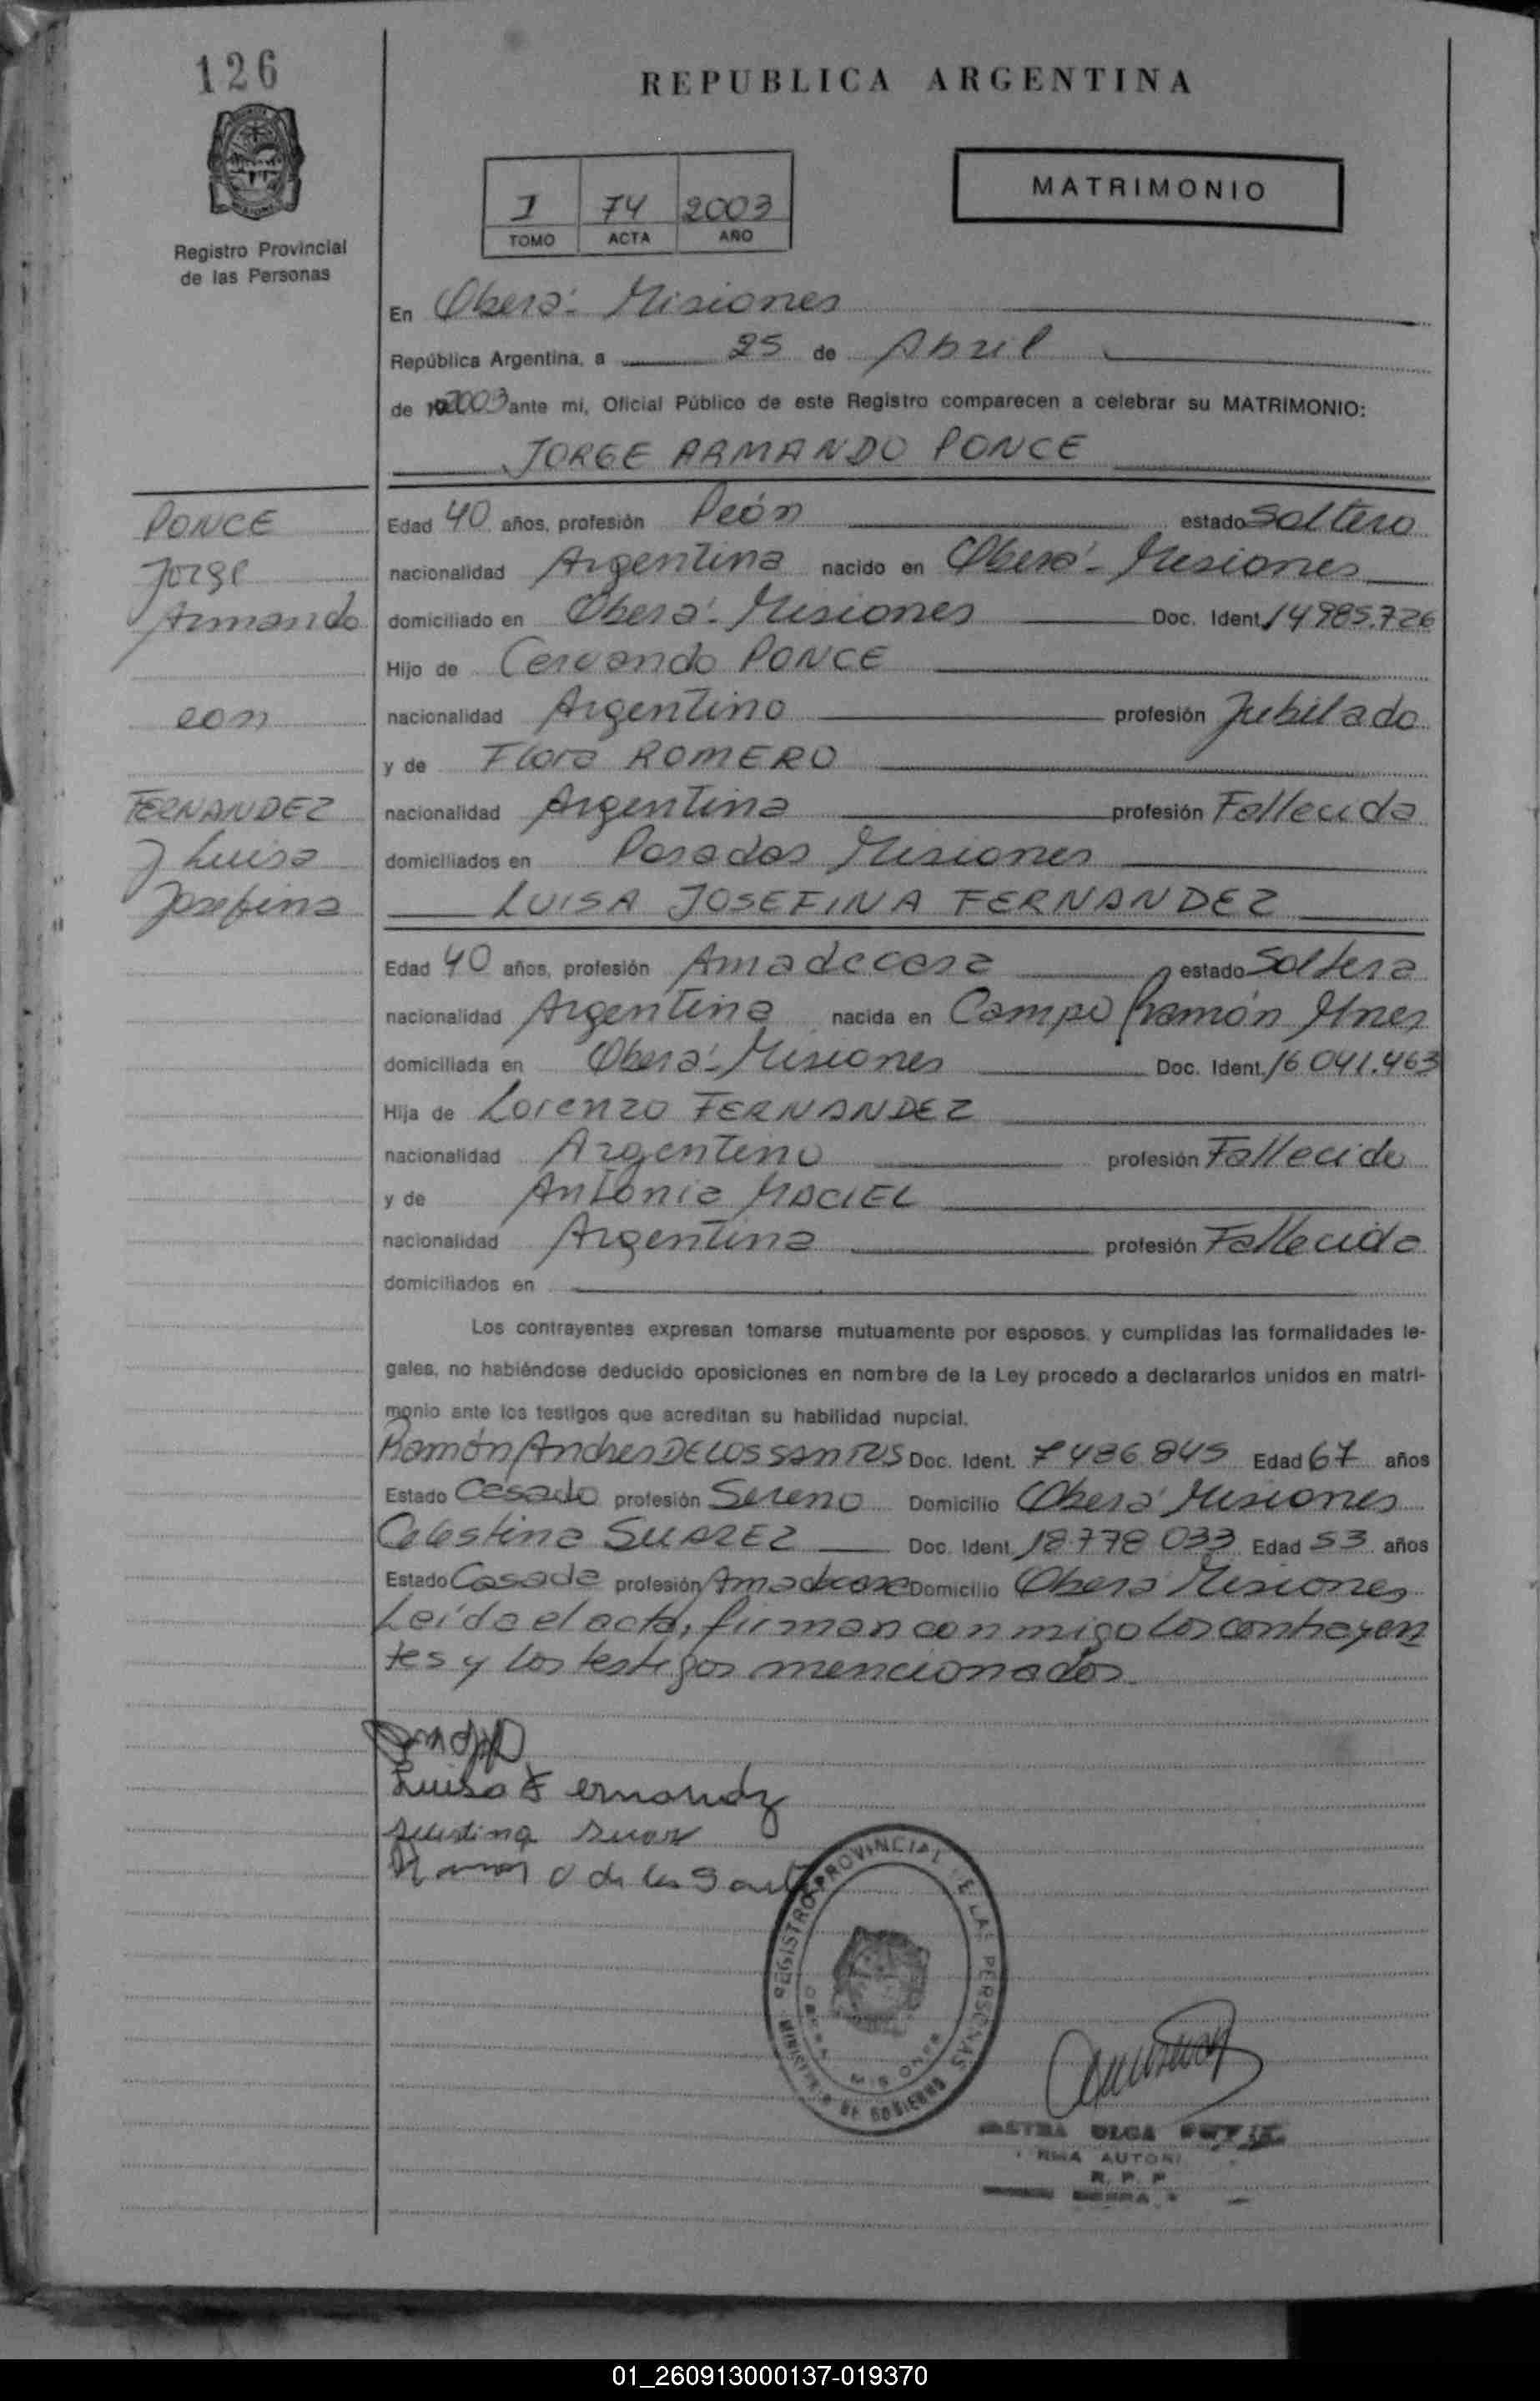 126
Registro Provincial
de las Personas
REPUBLICA ARGENTINA
I 74 2003
TOMO ACTA AÑO
MATRIMONIO
En Oberá - Misiones
República Argentina, a 25 de Abril
de 2003 ante mi, Oficial Público de este Registro comparecen a celebrar su MATRIMONIO:
JORGE ARMANDO PONCE
PONCE
Jorge
Armando
con
FERNANDEZ
Luisa
Josefina
Edad 40 años, profesión Peón estado Soltero
nacionalidad Argentina nacido en Oberá - Misiones
domiciliado en Oberá - Misiones Doc. Ident. 14985.726
Hijo de Cervando PONCE
nacionalidad Argentino profesión Jubilado
y de Flora ROMERO
nacionalidad Argentina profesión Fallecida
domiciliados en Posadas Misiones
LUISA JOSEFINA FERNANDEZ
Edad 40 años, profesión Amadecasa estado Soltera
nacionalidad Argentina nacida en Campo Ramón Mnes
domiciliada en Oberá - Misiones Doc. Ident. 16 041.463
Hija de Lorenzo FERNANDEZ
nacionalidad Argentino profesión Fallecido
y de Antonia MACIEL
nacionalidad Argentina profesión Fallecida
domiciliados en
Los contrayentes expresan tomarse mutuamente por esposos, y cumplidas las formalidades le-
gales, no habiéndose deducido oposiciones en nombre de la Ley procedo a declararlos unidos en matri-
monio ante los testigos que acreditan su habilidad nupcial.
Ramón Andres DE LOS SANTOS Doc. Ident. 7486 845 Edad 67 años
Estado Casado profesión Sereno Domicilio Oberá Misiones
Celestina SUAREZ Doc. Ident. 18.778 033 Edad 53 años
Estado Casada profesión Amadecasa Domicilio Oberá Misiones
Leída el acta, firman con migo los contrayen
tes y los testigos mencionados.
Luisa Fernandez
REGISTRO PROVINCIAL DE LAS PERSONAS
MINISTERIO DE GOBIERNO
MISIONES
OLGA
R. P. P.
01_260913000137-019370